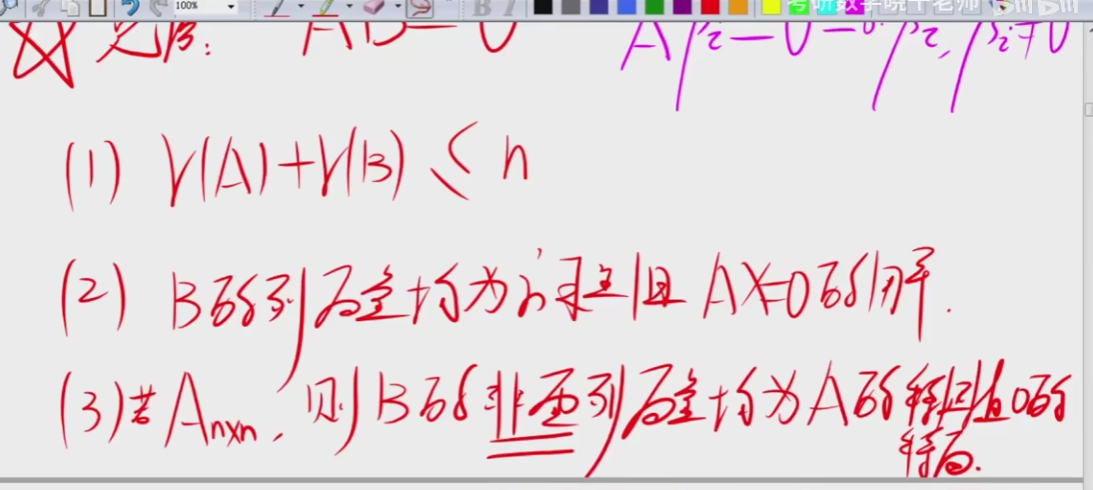 100%
考研数学晓千老师 bilibili
见后: AB=0 Aβ₂=0=0·β₂, β₂≠0
(1) r(A)+r(B) ≤ n
(2) B的列向量均为方程组 AX=0的解.
(3) 若 Aₙₓₙ, 则B的非零列向量均为A的特征值0的
特向.